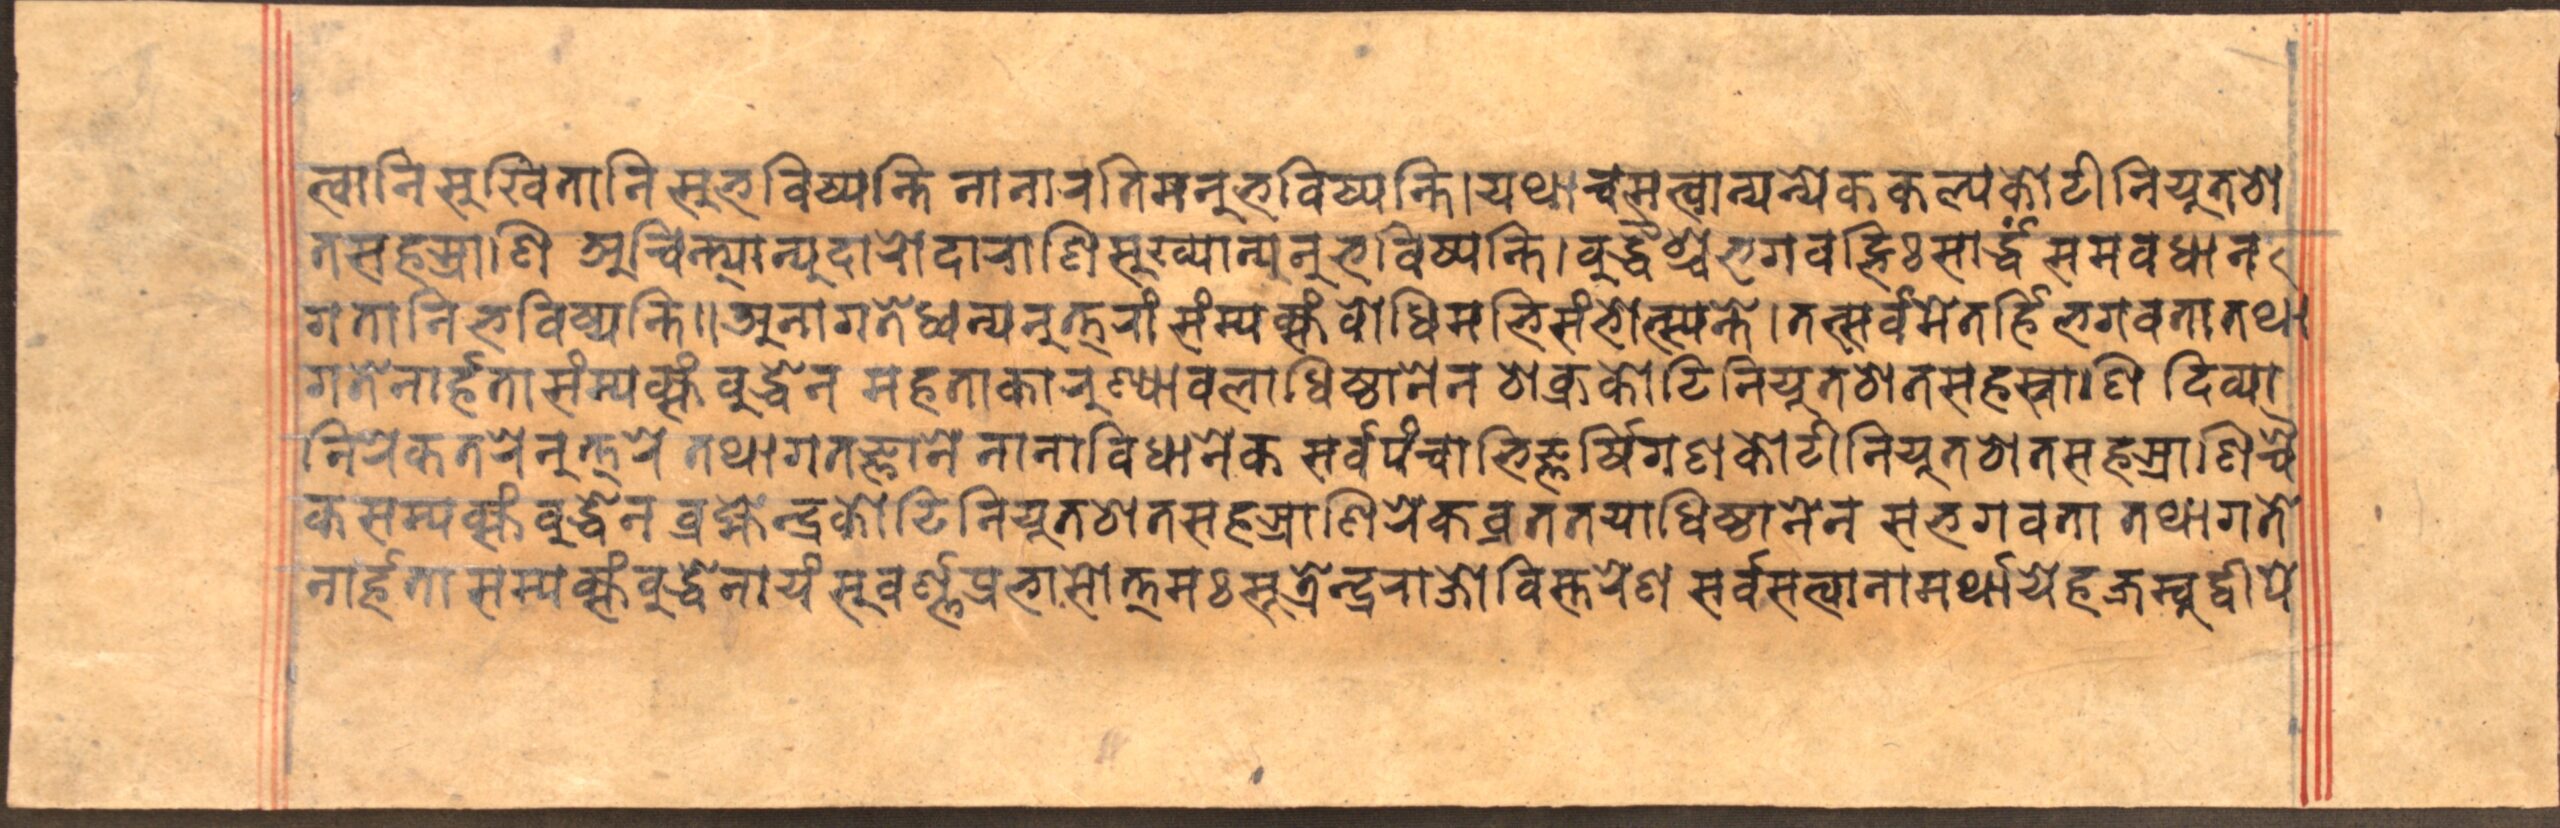 त्वानि सुखितानि सुभविष्यन्ति नानारतिमनुभविष्यन्ति। यथा च सत्वान्यन्येककल्पकोटीनियुतशे
तसहस्राणि अचिन्त्यान्युदारोदाराणि सुख्यान्यनुभविष्यन्ति। वुद्धैश्चभगवद्भिः सार्द्धं समवधान
गतानि भविष्यन्ति॥ अनागतेध्वन्यनुत्त्रां संम्यक्सं वोधिमभिसंभोत्स्यन्ते। तत्सर्वमेतर्हि भगवता तथा
गतेनार्हता संम्यक्सं वुद्धेन महता कारुण्यावलाधिष्ठानेन शेक्रकोटिनियुतशेतसहस्राणि दिव्या
निरेकतरेनुत्त्रे तथागतज्ञाने नानाविधानेक सर्वपंचाभिज्ञर्षिगणकोटीनियुतशेतसहस्राणि यै
क सम्यक्सं वुद्धेन व्रह्मेन्द्रकोटिनियुतशेतसहस्राणिरेकव्रततयाधिष्ठानेन स भगवता तथागते
नार्हता सम्यक्सं वुद्धेनायं सुवर्ण्णप्रभासोत्त्मः सूत्रेन्द्रराजो विस्तरेण सर्वसत्वानामर्थायेह जम्वुद्वीपे